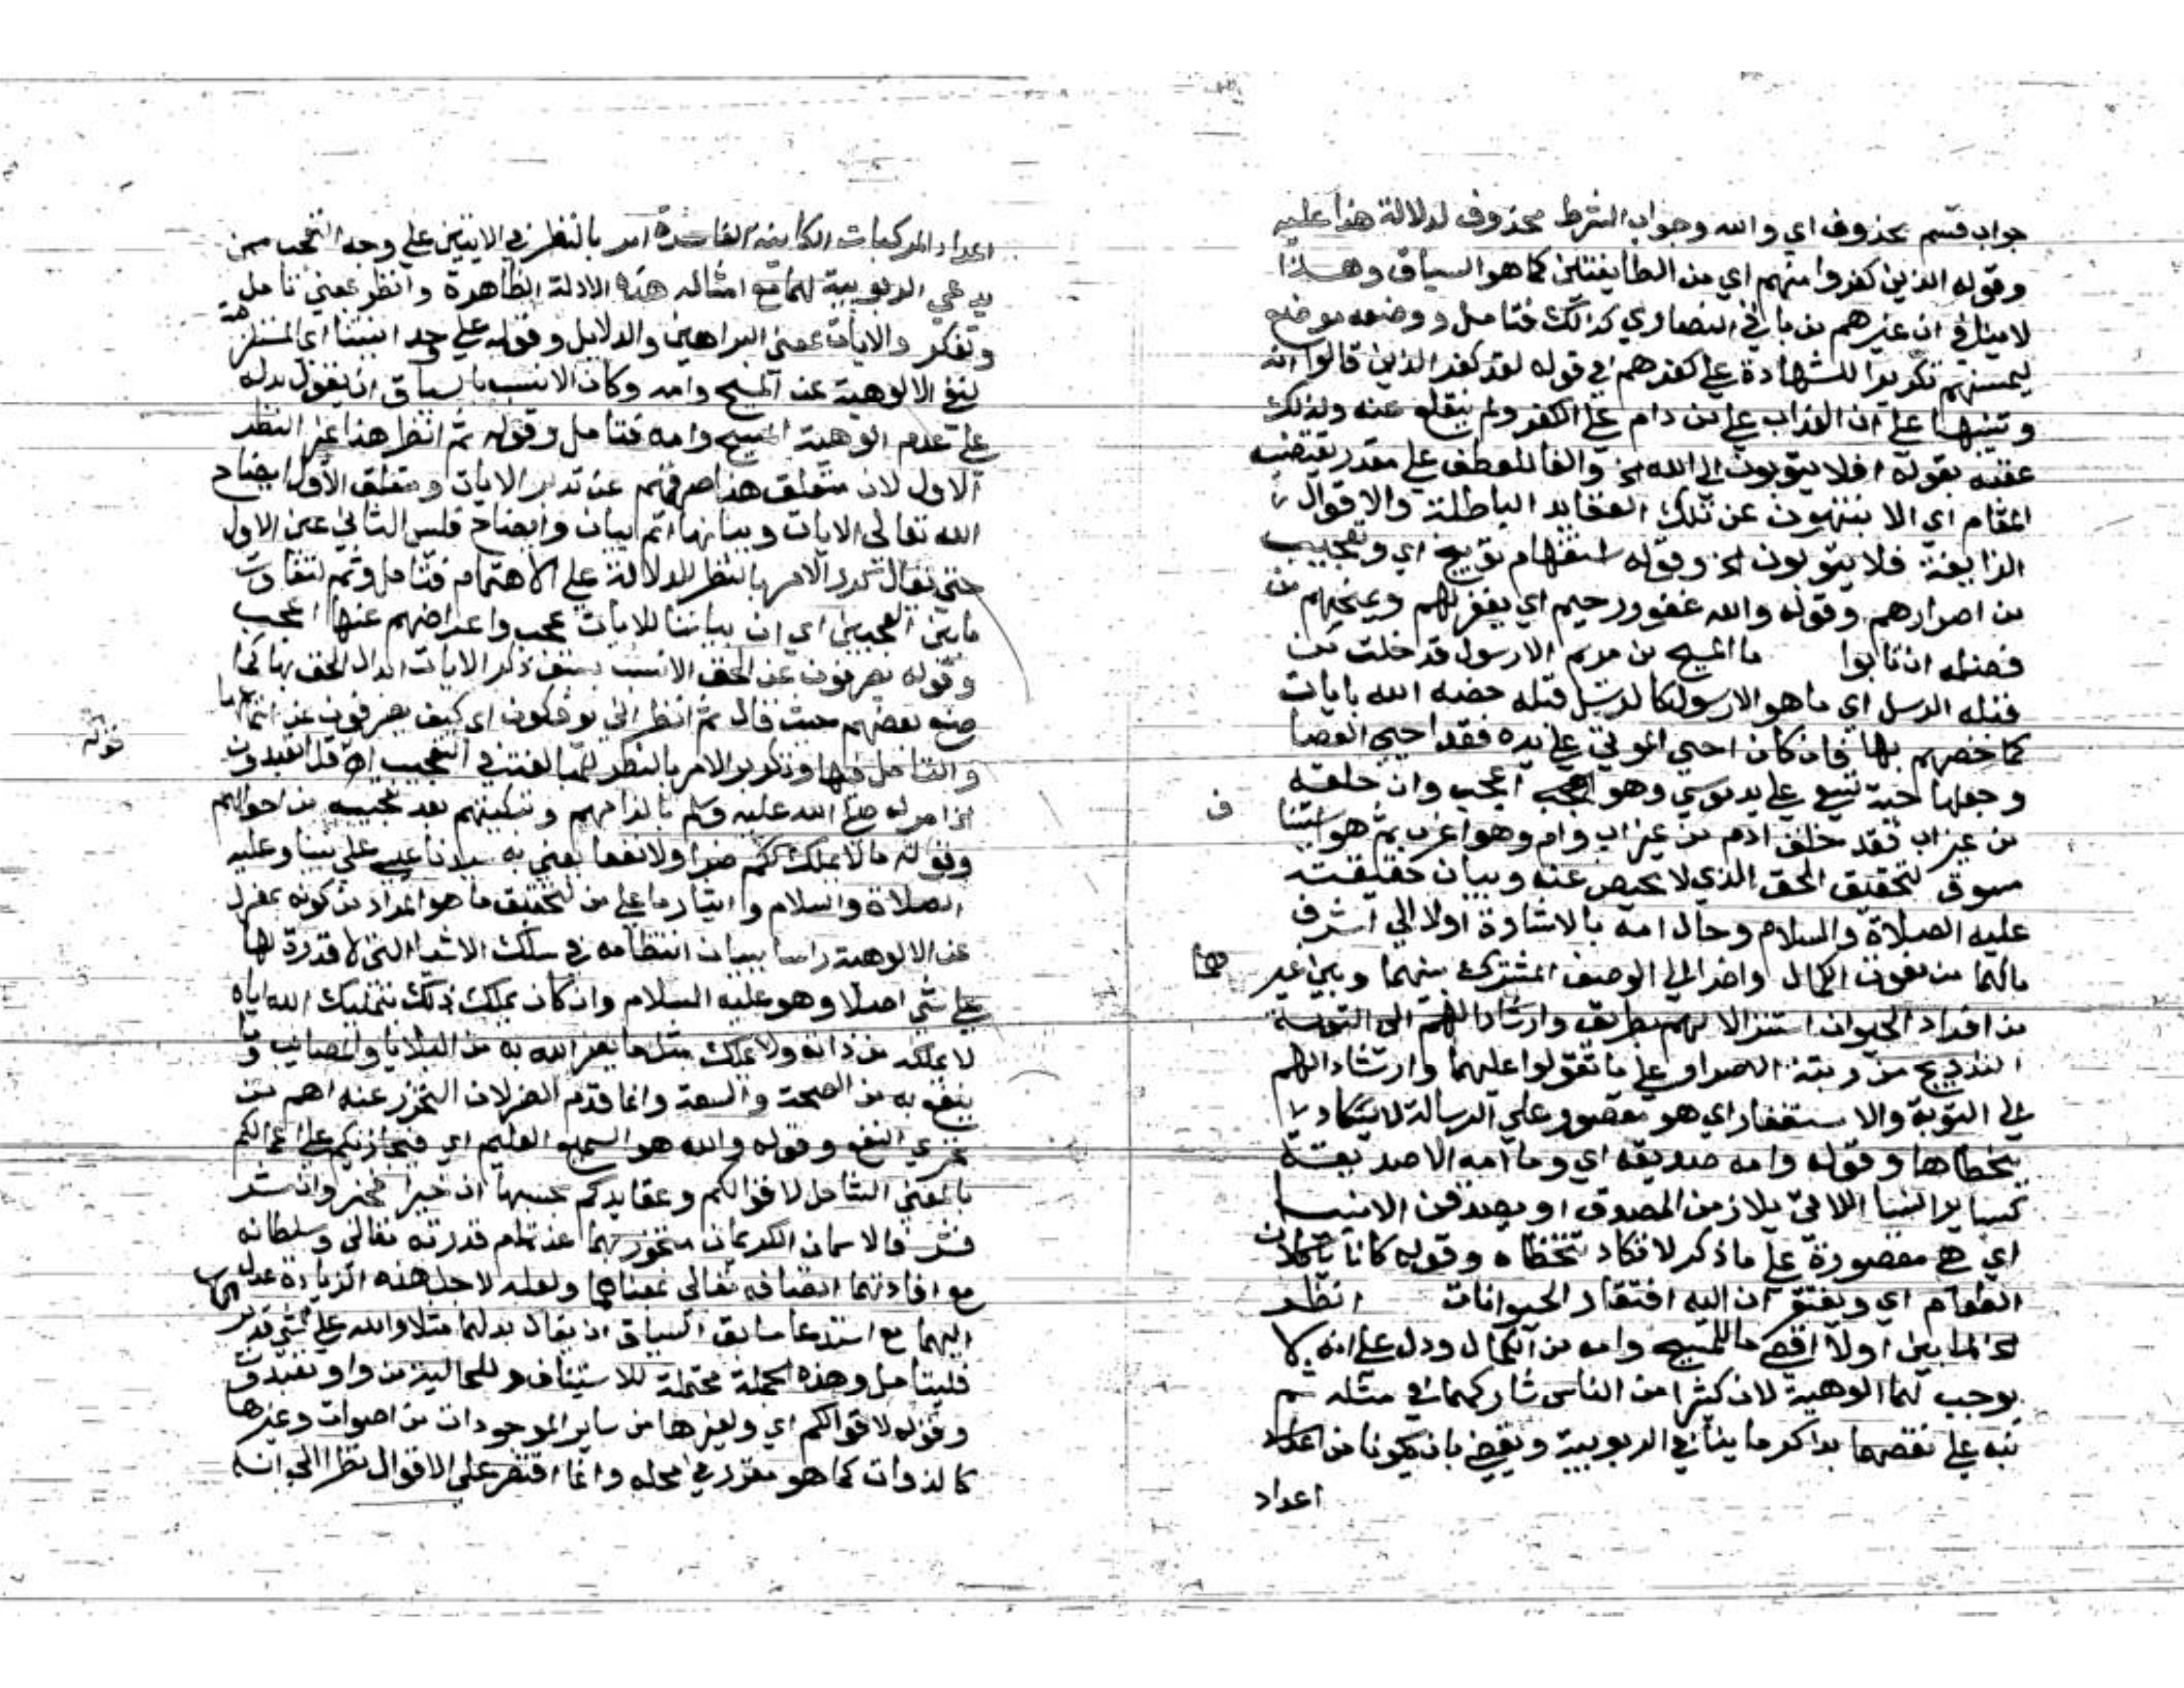 جواب قسم محذوف اي والله وجواب الشرط محذوف لدلالة هذا عليه
وقوله الذين كفروا منهم اي من الطايفتين كما هو السياق وهذا
لا ينافي ان غيرهم من باقي النصاري كذلك فتامل ووضعه موضع
ليمسنهم تكريرا للشهادة علي كفرهم في قوله لقد كفر الذين قالوا ان
وتنبيها علي ان العذاب علي من دام علي الكفر ولم ينقلع عنه ولذلك
عقبه بقوله افلا يتوبون الي الله الخ والفا للعطف علي مقدر يقتضيه
المقام اي الا ينتهون عن تلك العقايد الباطلة والاقوال
الزايغة فلا يتوبون الخ وقوله استفهام توبيخ اي وتعجيب
من اصرارهم وقوله والله غفور رحيم اي يغفر لهم ويمنحهم من
فضله ان تابوا ما المسيح بن مريم الا رسول قد خلت من
قبله الرسل اي ما هو الا رسول كالرسل قبله خصه الله بايات
كما خصهم بها فان كان احيي الموتي علي يده فقد احيي العصا
وجعلها حية تسعي علي يد موسي وهو اعجب وان خلقه
من غير اب فقد خلق ادم من غير اب وام وهو اغرب ثم هو استينا
ف
مسوق لتحقيق الحق الذي لا محيص عنه وبيان حقيقته
عليه الصلاة والسلام وحال امه بالاشارة اولا الي اشرف
مالهما من نعوت الكمال واخرا الي الوصف المشترك بينهما وبين غير
هما
من افراد الحيوان استنزالا لهم بطريق وارشادا لهم الي التوبة
التدريج من رتبة الاصرار علي ما تقولوا عليهما وارشاد الهم
الي التوبة والاستغفار اي هو مقصور علي الرسالة لا يكاد
يتخطاها وقوله وامه صديقة اي وما امه الا صديقة
كساير النسا اللاتي يلازمن الصدق او يصدقن الانبيا
اي هي مقصورة علي ما ذكر لا تكاد تتخطاه وقوله كانا ياكلان
الطعام اي ويفتقران اليه افتقار الحيوانات انظر
الخ لما بين اولا اقصي ما للمسيح وامه من الكمال ودل علي انه لا
يوجب لهما الوهية لان كثيرا من الناس شاركهما في مثله ثم
نبه علي نقصهما بذكر ما ينافي الربوبية ويقتضي بان يكونا من اعداد
اعداد
اعداد المركبات الكاينة الفاسدة امر بالنظر في الايتين علي وجه التعجب ممن
يدعي الربوبية لهما مع امثال هذه الادلة الظاهرة وانظر بمعني تامل
وتفكر والايات بمعني البراهين والدلايل وقوله علي وحدانيتنا اي المستلزمة
لنفي الالوهية عن المسيح وامه وكان الانسب بالسياق ان يقول بدله
علي عدم الوهية المسيح وامه فتامل وقوله ثم انظر هذا غير النظر
الاول لان متعلق هذا صرفهم عن تدبر الايات ومتعلق الاول ايضاح
الله تعالي الايات وبيانها اتم بيان وايضاح فليس الثاني عين الاول
حتي يقال كرر الامر بالنظر للدلالة علي الاهتمام فتامل وثم لتفاوت
ما بين العجبين اي ان بياننا للايات عجب واعراضهم عنها اعجب
وقوله يصرفون عن الحق الانسب بسبق ذكر الايات ابدال الحق بها كما
صنع بعضهم حيث قال ثم انظر اني يوفكون اي كيف يصرفون عن استماعها
والتامل فيها وتكرير الامر بالنظر للمبالغة في التعجيب اه قل اتعبدون
قوله
الخ امر له صلي الله عليه وسلم بالزامهم وتبكيتهم بعد تعجيبه من احوالهم
وقوله مالا يملك لكم ضرا ولا نفعا يعني به سيدنا عيسي علي نبينا وعليه
الصلاة والسلام وايثار ما علي من لتحقيق ما هو المراد من كونه بمعزل
عن الالوهية راسا ببيان انتظامه في سلك الاشيا التي لا قدرة لها
علي شي اصلا وهو عليه السلام وان كان يملك ذلك بتمليك الله اياه
لا يملكه من ذاته ولا يملك مثل ما يضر الله به من البلايا والمصايب وما
ينفع به من الصحة والسعة وانما قدم الضر لان التحرز عنه اهم من
تحري النفع وقوله والله هو السميع العليم اي فيجازيكم علي اعمالكم
بالمعني الشامل لاقوالكم وعقايدكم بحسبها ان خيرا فخير وان شر
فشر فالاسمان الكريمان
مع افادتهما اتصافه تعالي بمعناهما ولعله لاجل هذه الزيادة عدل
اليهما مع استدعا سابق السياق ان يقال بدلهما مثلا والله علي كل شي قدير
فليتامل وهذه الجملة محتملة للاستيناف وللحالية من واو تعبدون
وقوله لاقوالكم اي ولغيرها من ساير الموجودات من اصوات وغيرها
كالذوات كما هو مقرر في محله وانما اقتصر علي الاقوال نظرا الي انه